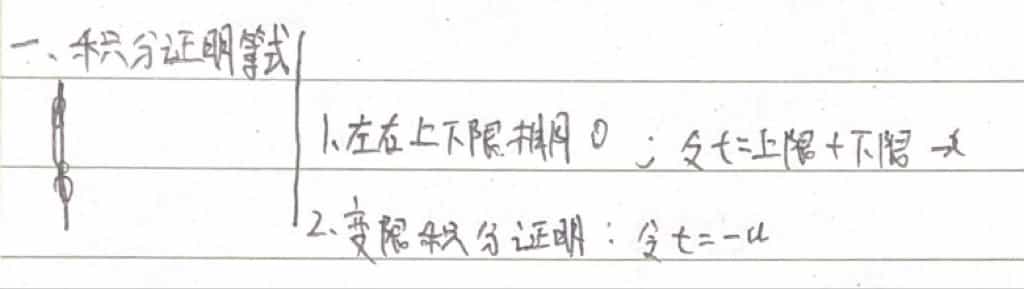 一、积分证明等式
1、左右上下限相同 ; 令t=上限+下限-x
2、变限积分证明: 令t=-u